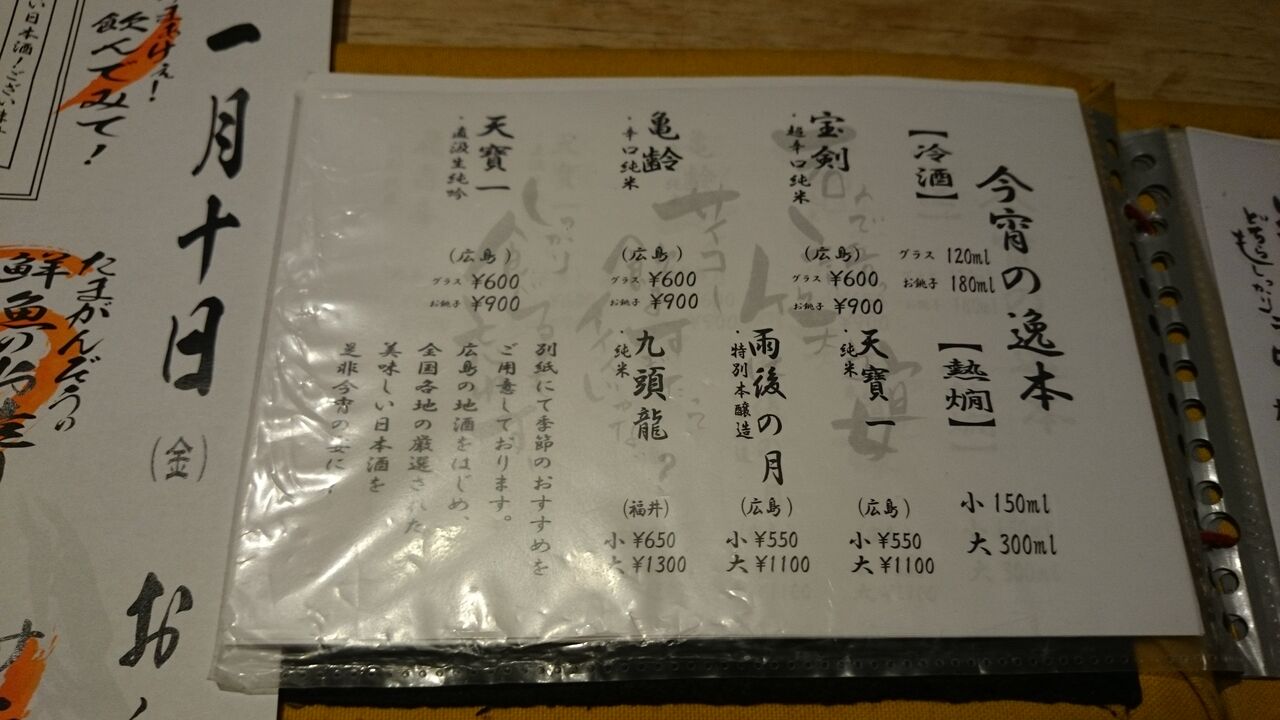 今宵の逸本
【冷酒】
グラス 120ml
お銚子 180ml
宝剣
・超辛口純米
(広島)
グラス ¥600
お銚子 ¥900
亀齢
・辛口純米
(広島)
グラス ¥600
お銚子 ¥900
天寶一
・直汲生純吟
(広島)
グラス ¥600
お銚子 ¥900
【熱燗】
小 150ml
大 300ml
天寶一
・純米
(広島)
小 ¥550
大 ¥1100
雨後の月
・特別本醸造
(広島)
小 ¥550
大 ¥1100
九頭龍
・純米
(福井)
小 ¥650
大 ¥1300
別紙にて季節のおすすめを
ご用意しております。
広島の地酒をはじめ、
全国各地の厳選された
美味しい日本酒を
是非今宵の宴に!
一月十日(金)
お
飲んでみて!
い日本酒!ござい
鮮魚の